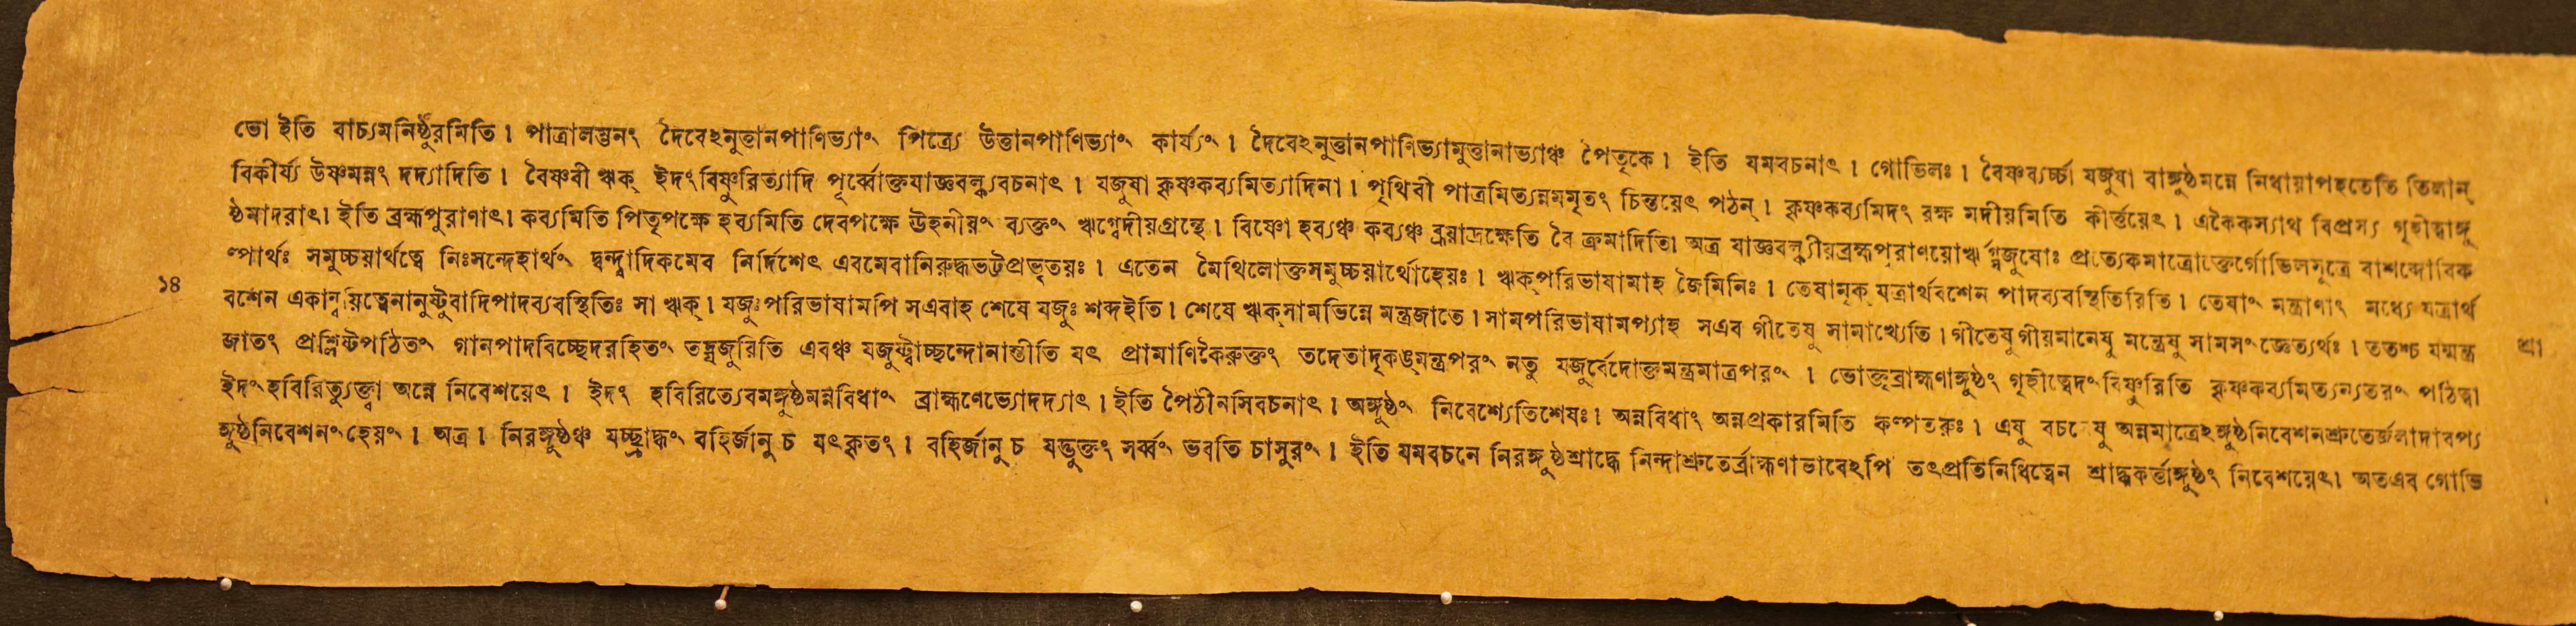 ভো ইতি বাচ্যমনিষ্ঠুরমিতি। পাত্রালম্ভনং দৈবেঽনুত্তানপাণিভ্যাং পিত্র্যে উত্তানপাণিভ্যাং কার্য্যং। দৈবেঽনুত্তানপাণিভ্যামুত্তানাভ্যাঞ্চ পৈতৃকে। ইতি যমবচনাৎ। গোভিলঃ। বৈষ্ণব্যর্চ্চা যজুষা বাঙ্গুষ্ঠমন্নে নিধায়াপহতেতি তিলান্
বিকীর্য্য উষ্ণমন্নং দদ্যাদিতি। বৈষ্ণবী ঋক্ ইদংবিষ্ণুরিত্যাদি পূর্ব্বোক্তযাজ্ঞবল্ক্যবচনাৎ। যজুষা কৃষ্ণকব্যমিত্যাদিনা। পৃথিবী পাত্রমিত্যন্নমমৃতং চিন্তয়েৎ পঠন্। কৃষ্ণকব্যমিদং রক্ষ মদীয়মিতি কীর্ত্তয়েৎ। একৈকস্যাথ বিপ্রস্য গৃহীত্বাঙ্গু
ষ্ঠমাদরাৎ। ইতি ব্রহ্মপুরাণাৎ। কব্যমিতি পিতৃপক্ষে হব্যমিতি দেবপক্ষে ঊহনীয়ং ব্যক্তং ঋগ্বেদীয়গ্রন্থে। বিষ্ণো হব্যঞ্চ কব্যঞ্চ ব্রূয়াদ্রক্ষেতি বৈ ক্রমাদিতি। অত্র যাজ্ঞবল্ক্যীয়ব্রহ্মপুরাণয়োর্ঋগ্যজুষোঃ প্রত্যেকমাত্রোক্তের্গোভিলসূত্রে বাশব্দোবিক
ল্পার্থঃ সমুচ্চয়ার্থত্বে নিঃসন্দেহার্থং দ্বন্দ্বাদিকমেব নির্দিশেৎ এবমেবানিরুদ্ধভট্টপ্রভৃতয়ঃ। এতেন মৈথিলোক্তসমুচ্চয়ার্থোহেয়ঃ। ঋক্‌পরিভাষামাহ জৈমিনিঃ। তেষামৃক্ যত্রার্থবশেন পাদব্যবস্থিতিরিতি। তেষাং মন্ত্রাণাং মধ্যে যত্রার্থ
১৪
বশেন একান্বয়িত্বেনানুষ্টুবাদিপাদব্যবস্থিতিঃ সা ঋক্। যজুঃপরিভাষামপি সএবাহ শেষে যজুঃ শব্দইতি। শেষে ঋক্‌সামভিন্নে মন্ত্রজাতে। সামপরিভাষামপ্যাহ সএব গীতেষু সামাখ্যেতি। গীতেষু গীয়মানেষু মন্ত্রেষু সামসংজ্ঞেত্যর্থঃ। ততশ্চ যন্মন্ত্র
শ্রা
জাতং প্রশ্লিষ্টপঠিতং গানপাদবিচ্ছেদরহিতং তদ্যজুরিতি এবঞ্চ যজুষ্ট্বাচ্ছন্দোনাস্তীতি যৎ প্রামাণিকৈরুক্তং তদেতাদৃকঙ্মন্ত্রপরং নতু যজুর্বেদোক্তমন্ত্রমাত্রপরং। ভোক্তৃব্রাহ্মণাঙ্গুষ্ঠং গৃহীত্বেদংবিষ্ণুরিতি কৃষ্ণকব্যমিত্যন্যতরং পঠিত্বা
ইদংহবিরিত্যুক্ত্বা অন্নে নিবেশয়েৎ। ইদং হবিরিত্যেবমঙ্গুষ্ঠমন্নবিধাং ব্রাহ্মণেভ্যোদদ্যাৎ। ইতি পৈঠীনসিবচনাৎ। অঙ্গুষ্ঠং নিবেশ্যেতিশেষঃ। অন্নবিধাং অন্নপ্রকারমিতি কল্পতরুঃ। এষু অন্নমাত্রেঽঙ্গুষ্ঠনিবেশনশ্রুতের্জলাদাবপ্য
ঙ্গুষ্ঠনিবেশনংহেয়ং। অত্র। নিরঙ্গুষ্ঠঞ্চ যচ্ছ্রাদ্ধং বহির্জানু চ যৎকৃতং। বহির্জানু চ যদ্ভুক্তং সর্ব্বং ভবতি চাসুরং। ইতি যমবচনে নিরঙ্গুষ্ঠশ্রাদ্ধে নিন্দাশ্রুতের্ব্রাহ্মণাভাবেঽপি তৎপ্রতিনিধিত্বেন শ্রাদ্ধকর্ত্তাঙ্গুষ্ঠং নিবেশয়েৎ। অতএব গোভি